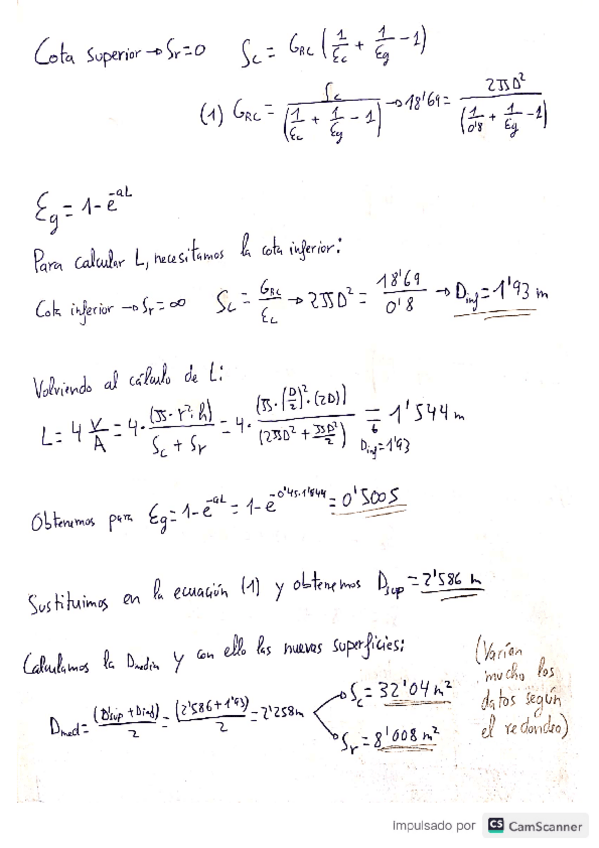 Cota superior → Sr=0   Sc = GRC (1/εc + 1/εg - 1)
(1) GRC = Sc / (1/εc + 1/εg - 1) → 18'69 = 2πD² / (1/0'8 + 1/εg - 1)
εg = 1 - e^-aL
Para calcular L, necesitamos la cota inferior:
Cota inferior → Sr = ∞   Sc = GRC/εc → 2πD² = 18'69/0'8 → Dinf = 1'93 m
Volviendo al cálculo de L:
L = 4 V/A = 4 · (π · r² · h) / (Sc + Sr) = 4 · (π · (D/2)² · (2D)) / (2πD² + πD²/2) = 1'544 m
Dinf = 1'93
Obtenemos para εg = 1 - e^-aL = 1 - e^-0'45·1'544 = 0'5005
Sustituimos en la ecuación (1) y obtenemos Dsup = 2'586 m
Calculamos la Dmedia y con ello las nuevas superficies:
Dmed = (Dsup + Dinf)/2 = (2'586 + 1'93)/2 = 2'258m
Sc = 32'04 m²
Sr = 8'008 m²
(Varían
mucho los
datos según
el redondeo)
Impulsado por CS CamScanner